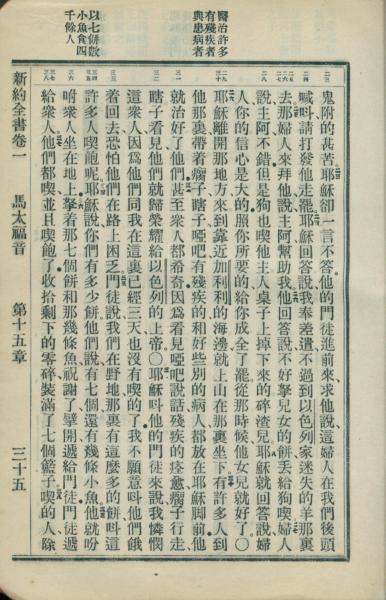 醫治許多
有殘疾者
與患病者
以七餅數
小魚食四
千餘人
鬼附的甚苦耶穌卻一言不答他的門徒進前來求他說這婦人在我們後頭
喊呌請打發他走罷耶穌回答說我奉差遣不過到以色列家迷失的羊那裏
去那婦人來拜他說主阿幫助我他回答說不好拏兒女的餅丟給狗喫婦人
說主阿不錯但是狗也喫他主人桌子上掉下來的碎渣兒耶穌就回答說婦
人你的信心是大的照你所要的給你成全了罷從那時候他女兒就好了〇
耶穌離開那地方來到靠近加利利的海邊就上山在那裏坐下有許多人到
他那裏帶着瘸子瞎子啞吧有殘疾的和好些別的病人都放在耶穌脚前他
就治好了他們甚至衆人都希奇因爲看見啞吧說話殘疾的痊愈瘸子行走
瞎子看見他們就歸榮耀給以色列的上帝〇耶穌呌他的門徒來說我憐憫
這衆人因爲他們同我在這裏已經三天也沒有喫的了我不願意呌他們餓
着回去恐怕他們在路上困乏門徒說我們在野地那裏有這麼多的餅呌這
許多人喫飽呢耶穌說你們有多少餅他們說有七個還有幾條小魚他就吩
咐衆人坐在地上拏着那七個餅和那幾條魚祝謝了擘開遞給門徒門徒遞
給衆人他們都喫並且喫飽了收拾剩下的零碎裝滿了七個籃子喫的人除
新約全書卷一 馬太福音 第十五章 三十五